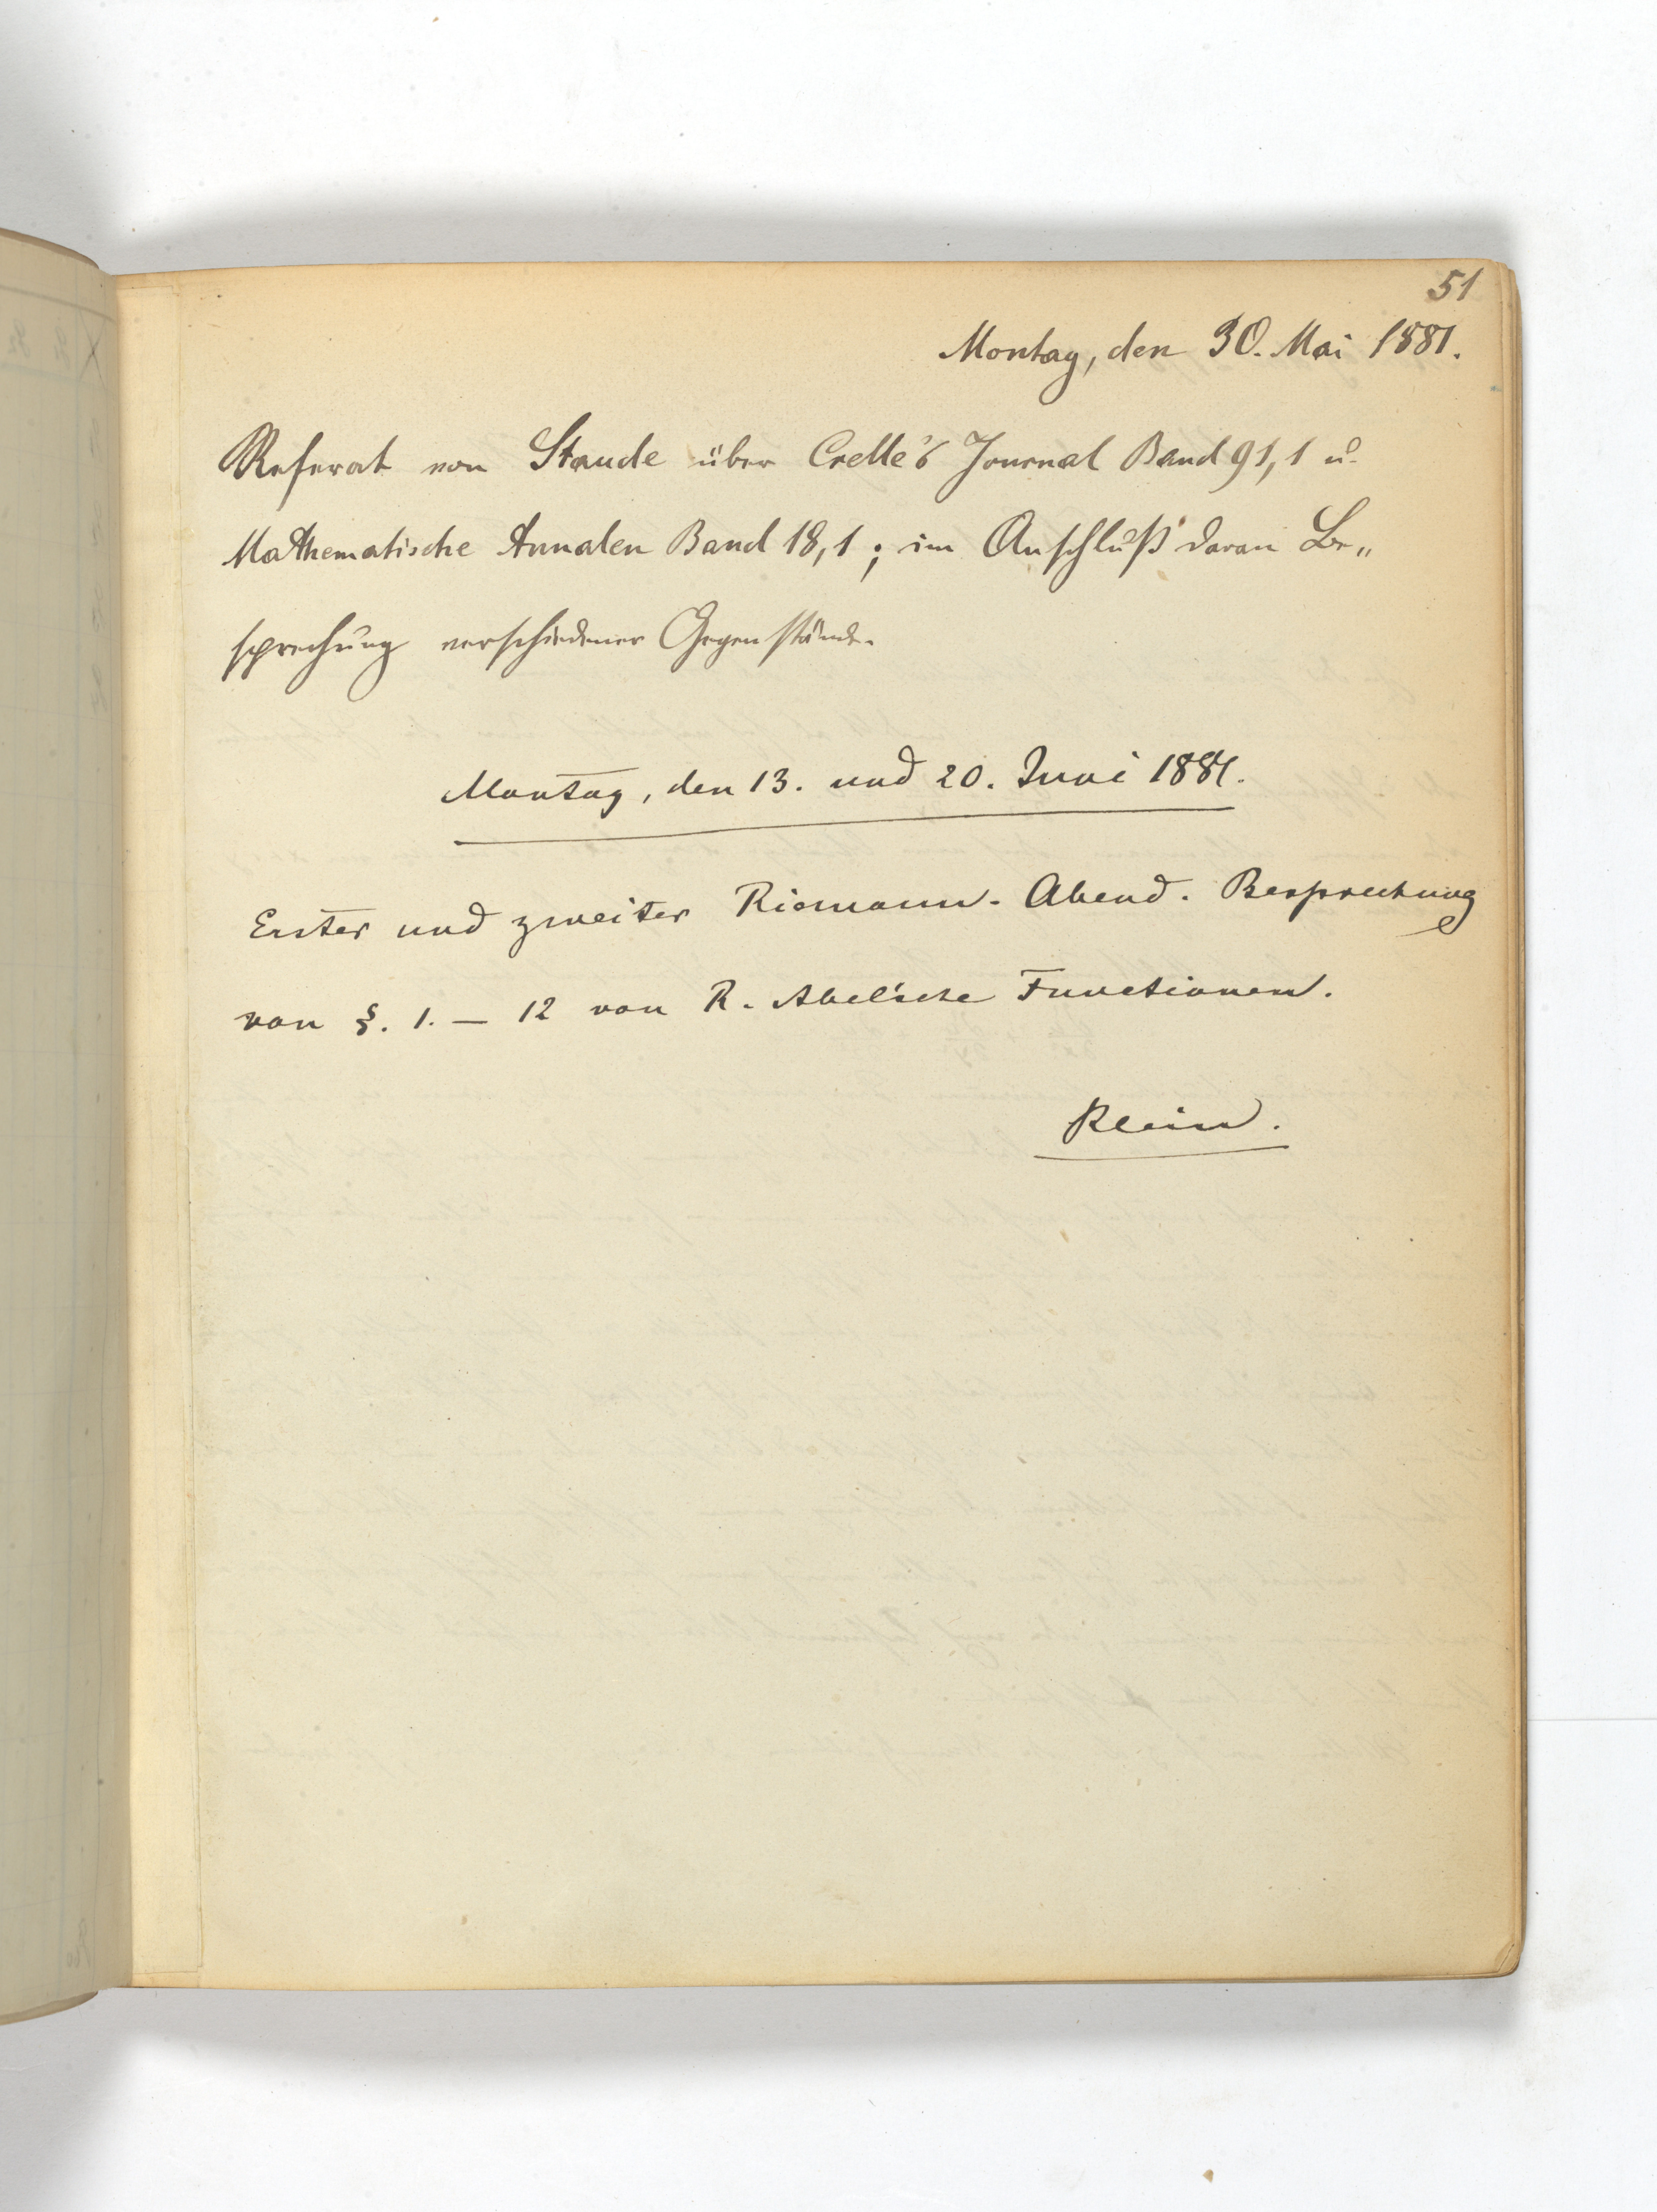 51
Montag, den 30. Mai 1881.
Referat von Staude über Crelle's Journal Band 91,1 u.
Mathematische Annalen Band 18,1; im Anschluß daran Be„
sprechung verschiedener Gegenstände.
Montag, den 13. und 20. Juni 1881.
Erster und zweiter Riemann-Abend. Besprechung
von §. 1. — 12 von R. Abel'sche Functionen.
Klein.